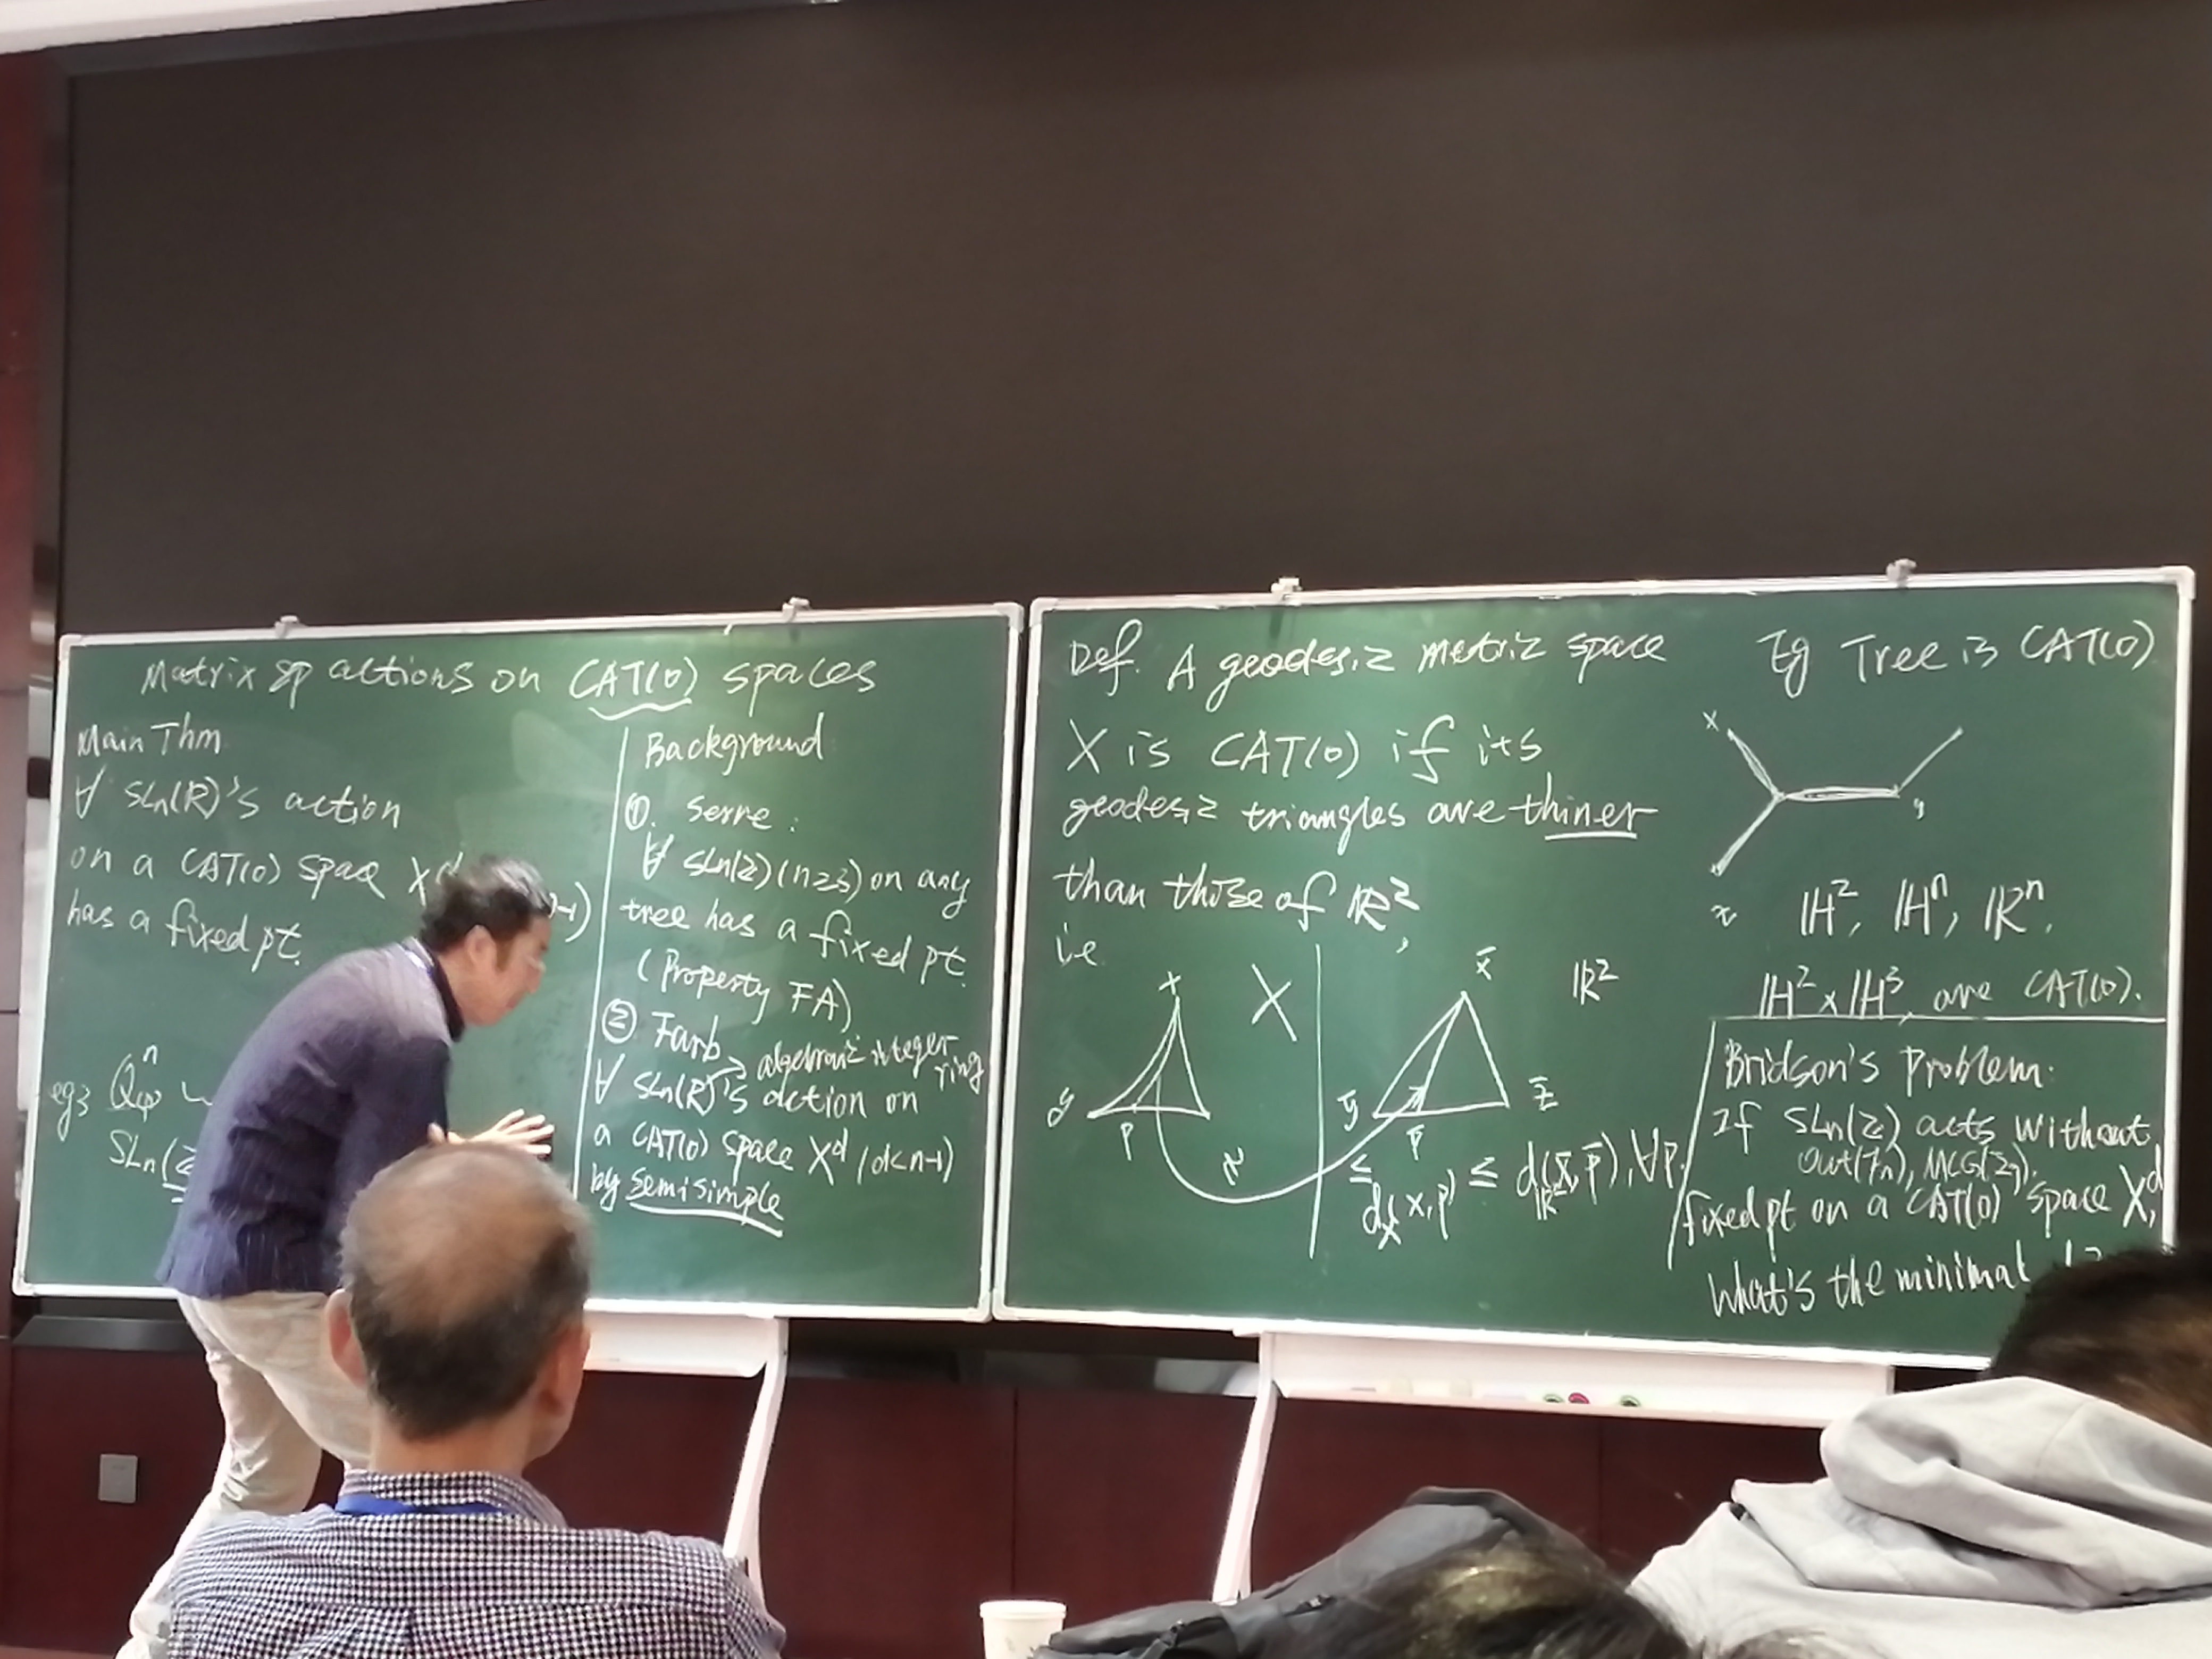 Matrix gp actions on CAT(0) spaces
Main Thm
∀ SLn(R)'s action
on a CAT(0) space X^d
n-1)
has a fixed pt.
eg3 Q_p^n
SLn(Z
Background
①. Serre:
∀ SLn(Z) (n≥3) on any
tree has a fixed pt.
(Property FA)
② Farb
→ algebraic integer
ring
∀ SLn(R)'s action on
a CAT(0) space X^d (d<n-1)
by semisimple
Def. A geodesic metric space
X is CAT(0) if its
geodesic triangles are thiner
than those of ℝ²,
i.e
x
X
y
p
x̄
ℝ²
ȳ
p̄
z̄
≤
d_X(x,p) ≤ d_ℝ²(x̄,p̄), ∀p.
Eg Tree is CAT(0)
x
y
z
ℍ², ℍⁿ, ℝⁿ.
ℍ²×ℍ³, are CAT(0).
Bridson's Problem:
If SLn(Z) acts without
Out(Fn), MCG(Σg).
fixed pt on a CAT(0) space X^d,
What's the minimal